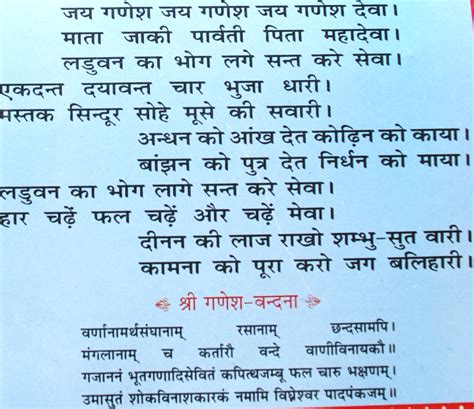 जय गणेश जय गणेश जय गणेश देवा।
माता जाकी पार्वती पिता महादेवा।
लडुवन का भोग लगे सन्त करे सेवा।
एकदन्त दयावन्त चार भुजा धारी।
मस्तक सिन्दूर सोहे मूसे की सवारी।
अन्धन को आंख देत कोढ़िन को काया।
बांझन को पुत्र देत निर्धन को माया।
लडुवन का भोग लागे सन्त करे सेवा।
हार चढ़ें फल चढ़ें और चढ़ें मेवा।
दीनन की लाज राखो शम्भु-सुत वारी।
कामना को पूरा करो जग बलिहारी।
श्री गणेश-वन्दना
वर्णानामर्थसंघानाम् रसानाम् छन्दसामपि।
मंगलानाम् च कर्तारौ वन्दे वाणीविनायकौ॥
गजाननं भूतगणादिसेवितं कपित्थजम्बू फल चारु भक्षणम्।
उमासुतं शोकविनाशकारकं नमामि विघ्नेश्वर पादपंकजम्॥